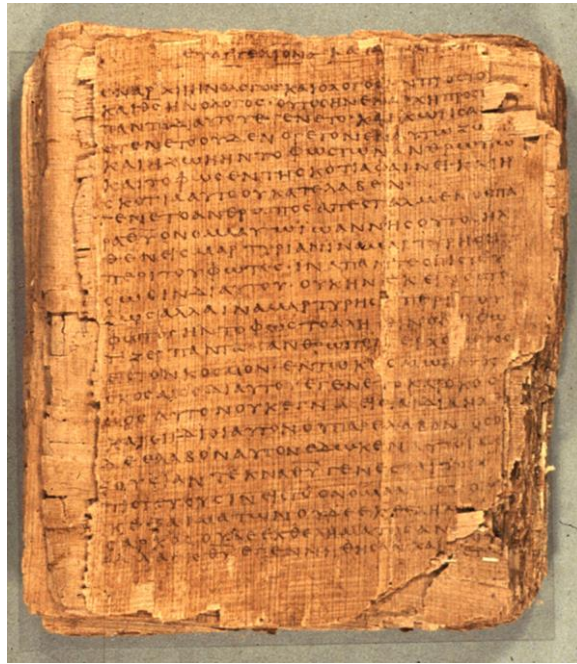 ΕΥΑΓΓΕΛΙΟΝ ΚΑΤΑ
ΕΝΑΡΧΗΗΝΟΛΟΓΟΣΚΑΙΟΛΟΓΟΣΗΝΠΡΟΣΤΟ
ΚΑΙΘΣΗΝΟΛΟΓΟΣ·ΟΥΤΟΣΗΝΕΝΑΡΧΗΠΡΟΣ
ΠΑΝΤΑΔΙΑΥΤΟΥΕΓΕΝΕΤΟ·ΚΑΙΧΩΡΙΣΑ
ΕΓΕΝΕΤΟΟΥΔΕΝΟΓΕΓΟΝΕΝΕΝΑΥΤΩΖΩ
ΚΑΙΗΖΩΗΗΝΤΟΦΩΣΤΩΝΑΝΘΡΩΠΩ
ΚΑΙΤΟΦΩΣΕΝΤΗΣΚΟΤΙΑΦΑΙΝΕΙΚΑΙΗ
ΣΚΟΤΙΑΑΥΤΟΟΥΚΑΤΕΛΑΒΕΝ·
ΕΓΕΝΕΤΟΑΝΘΡΩΠΟΣΑΠΕΣΤΑΛΜΕΝΟΣΠΑ
ΡΑΘΥΟΝΟΜΑΑΥΤΩΙΩΑΝΝΗΣΟΥΤΟΣΗΛ
ΘΕΝΕΙΣΜΑΡΤΥΡΙΑΝΙΝΑΜΑΡΤΥΡΗΣΗ
ΠΕΡΙΤΟΥΦΩΤΟΣ·ΙΝΑΠΑΝΤΕΣΠΙΣΤΕΥ
ΣΩΣΙΝΔΙΑΥΤΟΥ·ΟΥΚΗΝΕΚΕΙΝΟΣΤΟ
ΦΩΣΑΛΛΑΙΝΑΜΑΡΤΥΡΗΣΗΠΕΡΙΤΟΥ
ΦΩΤΟΣΗΝΤΟΦΩΣΤΟΑΛΗΘΙΝΟΝΟΦΩ
ΤΙΖΕΙΠΑΝΤΑΑΝΘΡΩΠΟΝΕΡΧΟΜΕΝΟ
ΕΙΣΤΟΝΚΟΣΜΟΝ·ΕΝΤΩΚΟΣΜΩΗΝ
ΚΟΣΜΟΣΔΙΑΥΤΟΥΕΓΕΝΕΤΟΚΑΙΟΚΟΣ
ΜΟΣΑΥΤΟΝΟΥΚΕΓΝΩΕΙΣΤΑΙΔΙΑΗΛΘΕ
ΚΑΙΟΙΙΔΙΟΙΑΥΤΟΝΟΥΠΑΡΕΛΑΒΟΝΟΣΟ
ΔΕΕΛΑΒΟΝΑΥΤΟΝΕΔΩΚΕΝΑΥΤΟΙΣ
ΞΟΥΣΙΑΝΤΕΚΝΑΘΥΓΕΝΕΣΘΑΙ
ΠΙΣΤΕΥΟΥΣΙΝΕΙΣΤΟΟΝΟΜΑ
ΑΙΜΑΤΩΝΟΥΔΕΕΚΘΕΛΗΜΑ
ΣΑΡΚΟΣΟΥΔΕΕΚΘΕΛΗΜΑΤΟΣΑΝ
ΑΛΛΕΚΘΥΕΓΕΝΝΗΘΗΣΑΝΚΑΙ